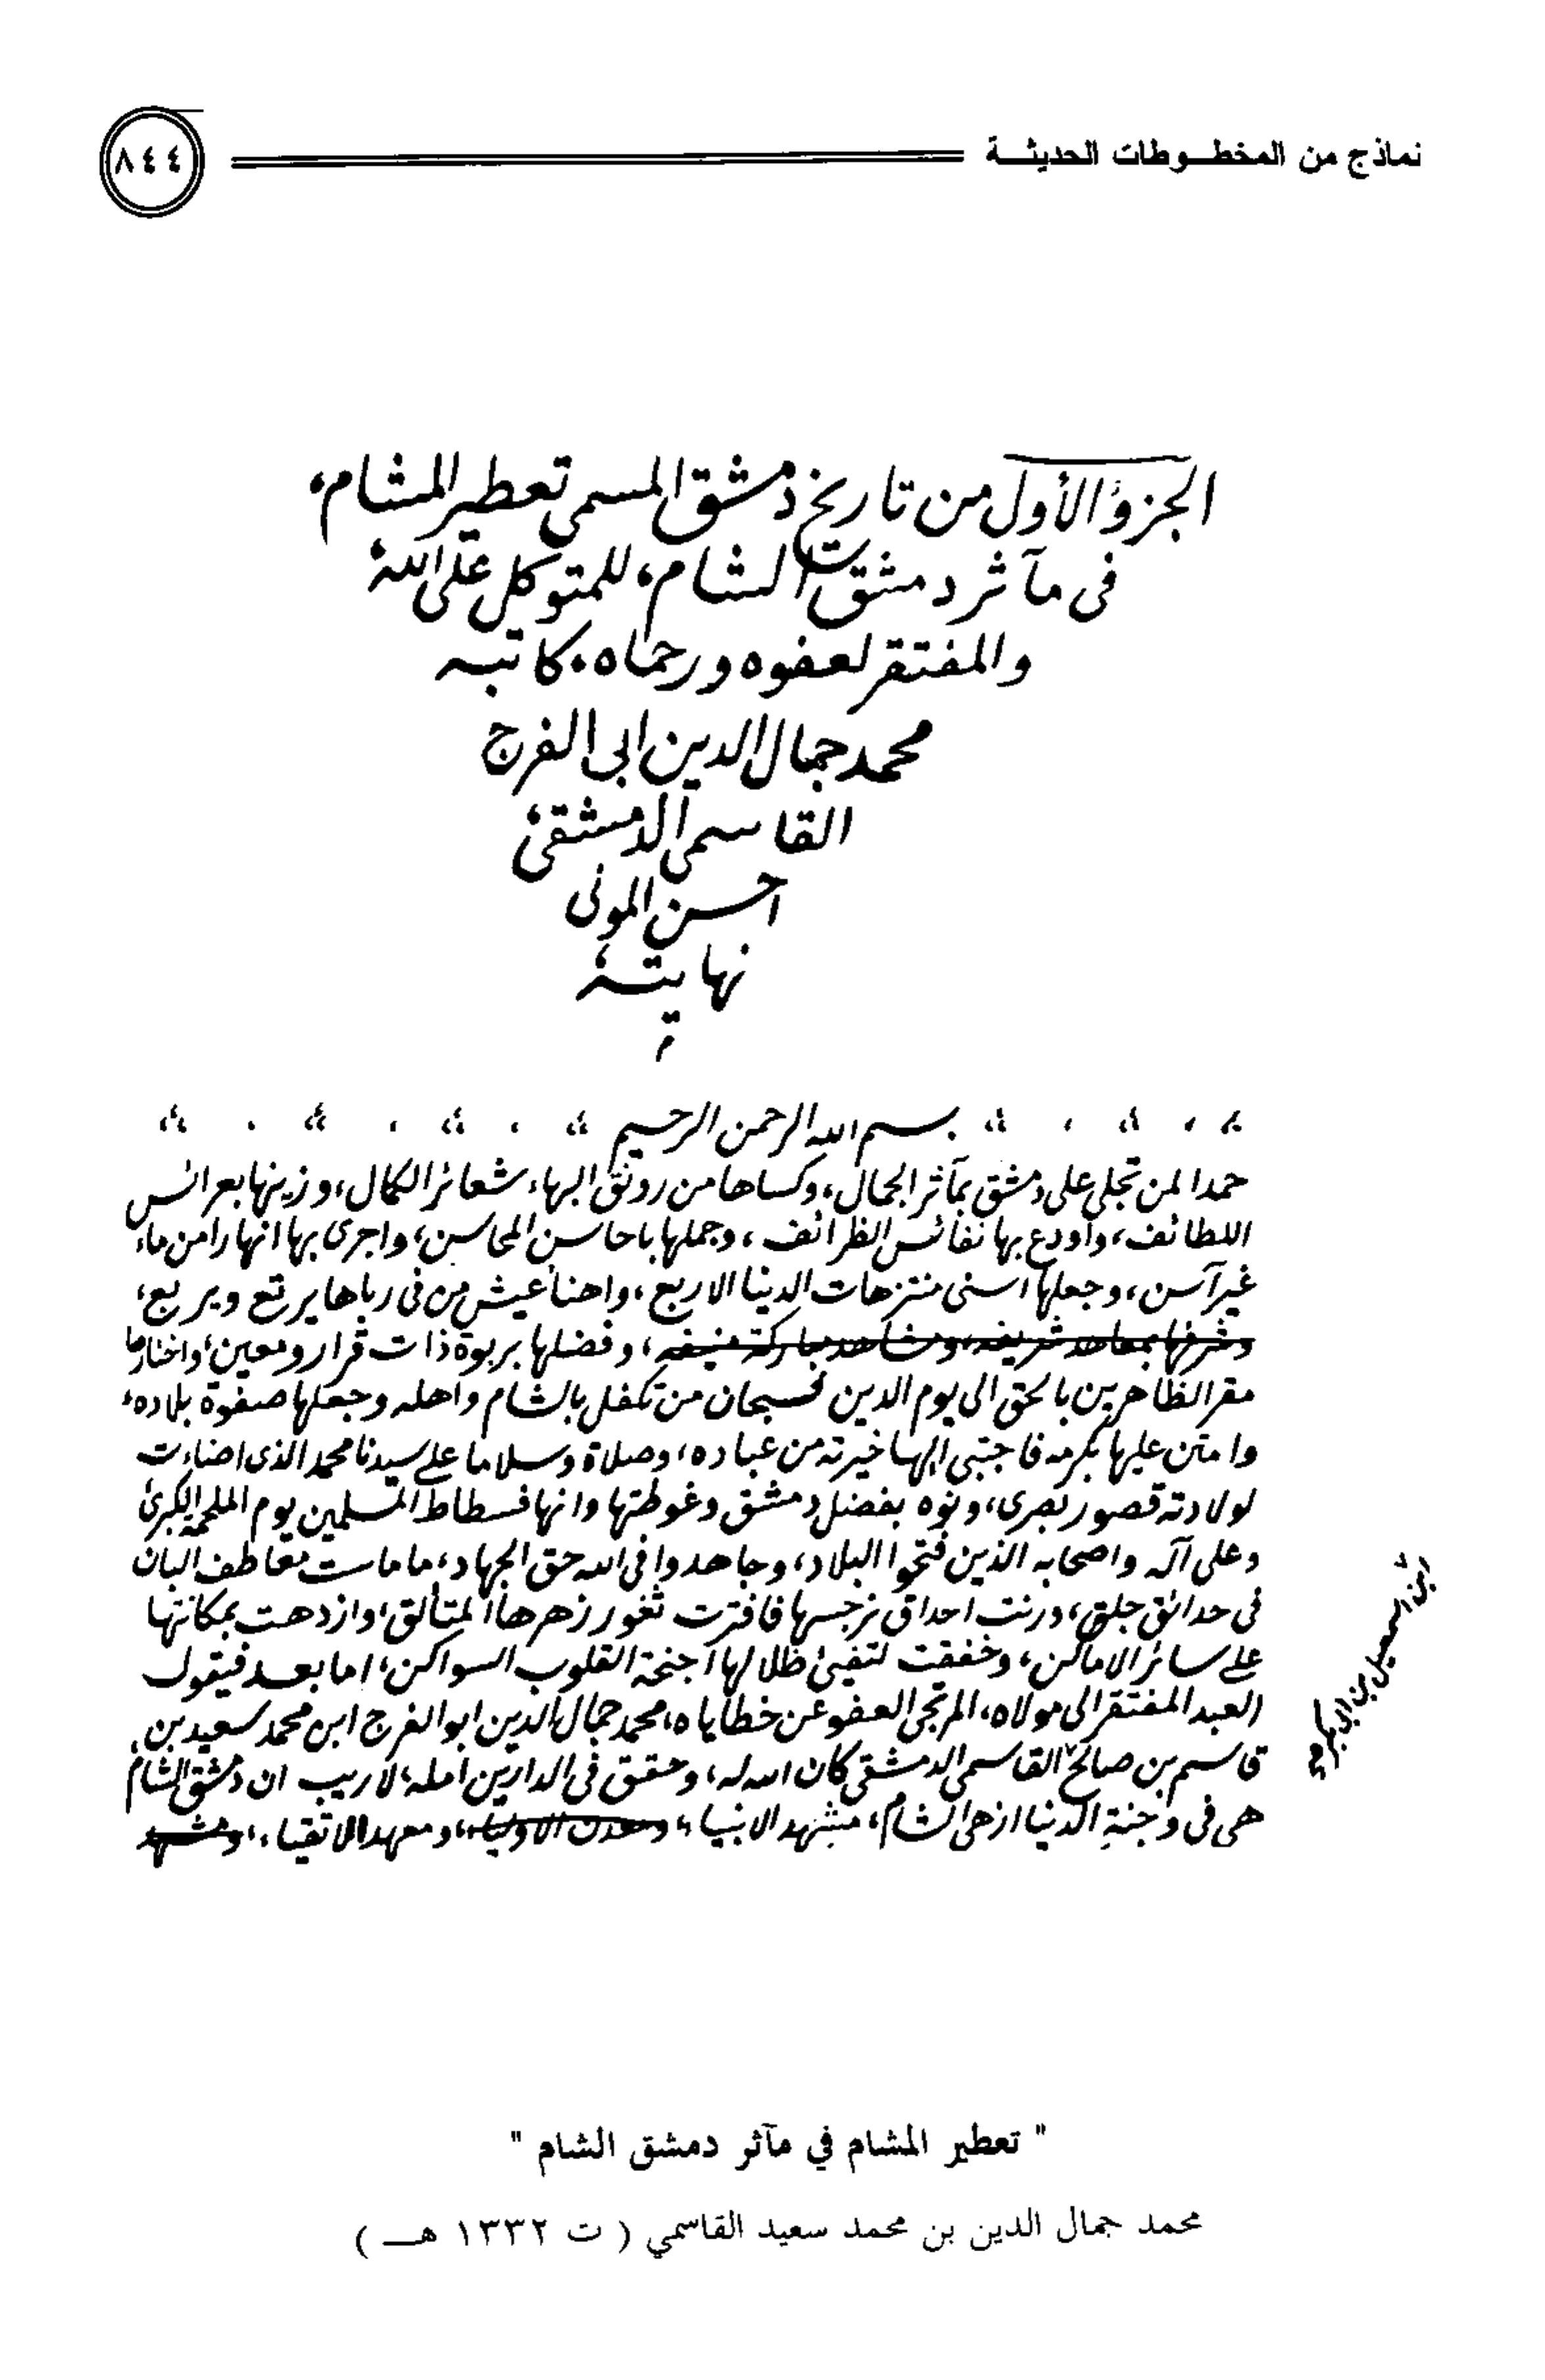 نماذج من المخطـوطات الحديثـة
٨٤٤
الجزؤ الأول من تاريخ دمشق المسمى تعطير المشام،
فى مآثر دمشق الشام، للمتوكل على الله
والمفتقر لعفوه ورحماه. كاتبه
محمد جمال الدين ابى الفرج
القاسمى الدمشقى
احسن المولى
نهايته
م
بسم الله الرحمن الرحيم
حمدا لمن تجلى على دمشق بمآثر الجمال، وكساها من رونق البهاء شعائر الكمال، وزينها بعرائس
اللطائف، واودع بها نفائس الظرائف، وجملها باحاسن المحاسن، واجرى بها انهارا من ماء
غير آسن، وجعلها اسنى منتزهات الدنيا الاربع، واهنأ عيش من فى رباها يرتع ويربع،
وشرفها بمعاهد شريفه، ومشاهد مباركة منيفه، وفضلها بربوة ذات قرار ومعين، واختارها
مقر الظاهرين بالحق الى يوم الدين فسبحان من تكفل بالشام واهله وجعلها صفوة بلاده،
وامتن عليها بكرمه فاجتبى اليها خيرته من عباده، وصلاة وسلاما على سيدنا محمد الذى اضاءت
لولادته قصور بصرى، ونوه بفضل دمشق وغوطتها وانها فسطاط المسلمين يوم الملحمة الكبرى
وعلى آله واصحابه الذين فتحوا البلاد، وجاهدوا فى الله حق الجهاد، ما ماست معاطف البان
فى حدائق جلق، ورنت احداق نرجسها فافترت ثغور زهرها المتألق، وازدهت بمكانتها
على سائر الاماكن، وخفقت لتفيئ ظلالها اجنحة القلوب السواكن، اما بعد فيقول
العبد المفتقر الى مولاه، المرتجى العفو عن خطاياه، محمد جمال الدين ابو الفرج ابن محمد سعيد بن
قاسم بن صالح القاسمى الدمشقى كان الله له، وحقق فى الدارين امله، لا ريب ان دمشق الشام
هى فى وجنة الدنيا ازهى الشام، مشهد الانبياء، ومعدن الاولياء، ومعهد الاتقياء، ومشهد
ابن اسمعيل بن ابى بكر
" تعطير المشام في مآثر دمشق الشام "
محمد جمال الدين بن محمد سعيد القاسمي ( ت ١٣٣٢ هـــ )